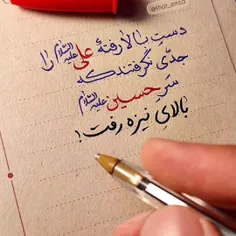 دستِ بالا رفتهٔ علی علیه‌السلام را
جدّی نگرفتند که
سَرِ حسین علیه‌السلام
بالایِ نیزه رفت!